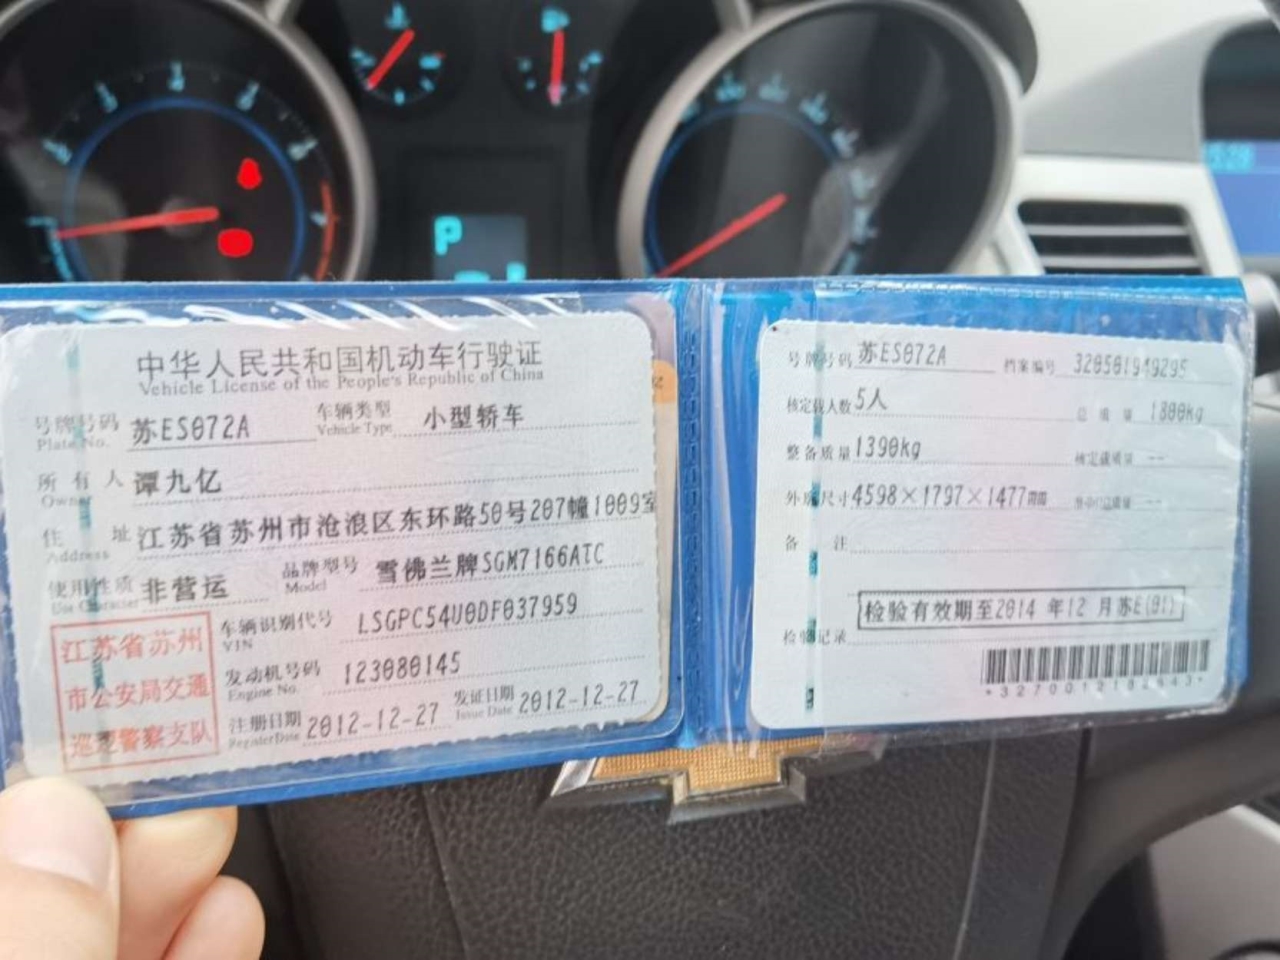 P
中华人民共和国机动车行驶证
Vehicle License of the People's Republic of China
号牌号码 苏ES072A 车辆类型 小型轿车
Plate No. Vehicle Type
所有人 谭九亿
Owner
住址 江苏省苏州市沧浪区东环路50号207幢1009室
Address
使用性质 非营运 品牌型号 雪佛兰牌SGM7166ATC
Use Character Model
江苏省苏州
市公安局交通
巡逻警察支队
车辆识别代号 LSGPC54U0DF037959
VIN
发动机号码 123080145
Engine No.
注册日期 2012-12-27 发证日期 2012-12-27
Register Date Issue Date
号牌号码 苏ES072A 档案编号 320501949295
核定载人数 5人 总质量 1800kg
整备质量 1390kg 核定载质量 --
外廓尺寸 4598×1797×1477 --
备注
检验记录 检验有效期至2014 年12 月苏E(01)